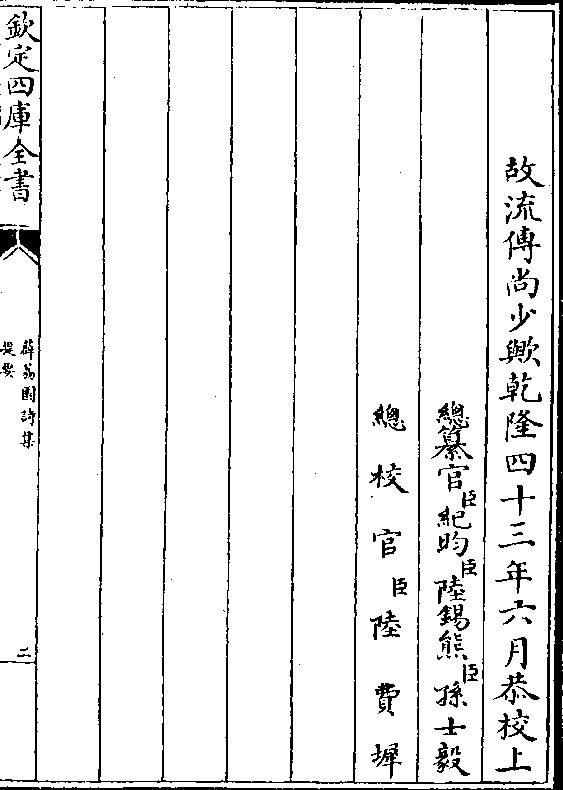 故流傳尚少歟乾隆四十三年六月恭校上
總纂官臣紀昀臣陸錫熊臣孫士毅
總校官臣陸費墀
欽定四庫全書
薜荔園詩集
提要
二